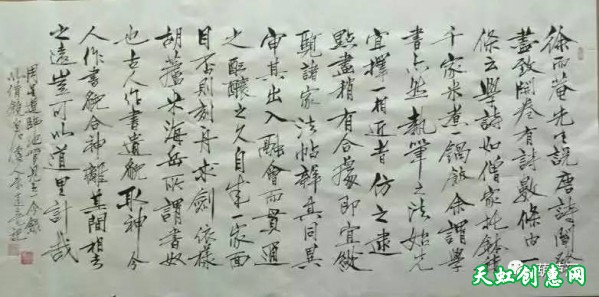 徐而菴先生說唐詩
致開卷有詩數條內一
條云學詩如僧家托缽積
千家米煮一鍋飯余謂學
書亦然執筆之法始先
宜擇一相近者仿之逮
點畫稍有合據即宜縱
覽諸家法帖辨其同異
審其出入融會而貫通
之醞釀之久自生一家面
目否則刻舟求劍依樣
胡蘆米海岳所謂書奴
也古人作書遺貌取神今
人作書貌合神離其間相去
之遠豈可以道里計哉
周星蓮臨池管見
天虹创意网